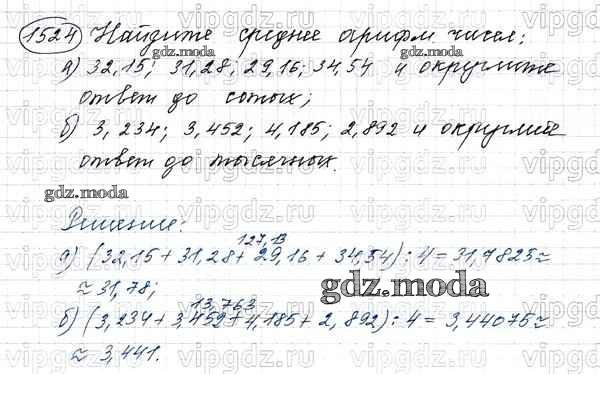 1524 Найдите среднее арифм чисел:
а) 32,15; 31,28; 29,16; 34,54 и округлите
ответ до сотых;
б) 3,234; 3,452; 4,185; 2,892 и округлите
ответ до тысячных.
gdz.moda
Решение:
127,13
а) (32,15 + 31,28 + 29,16 + 34,54) : 4 = 31,7825 ≈
≈ 31,78;
gdz.moda
13,763
б) (3,234 + 3,452 + 4,185 + 2,892) : 4 = 3,44075 ≈
≈ 3,441.